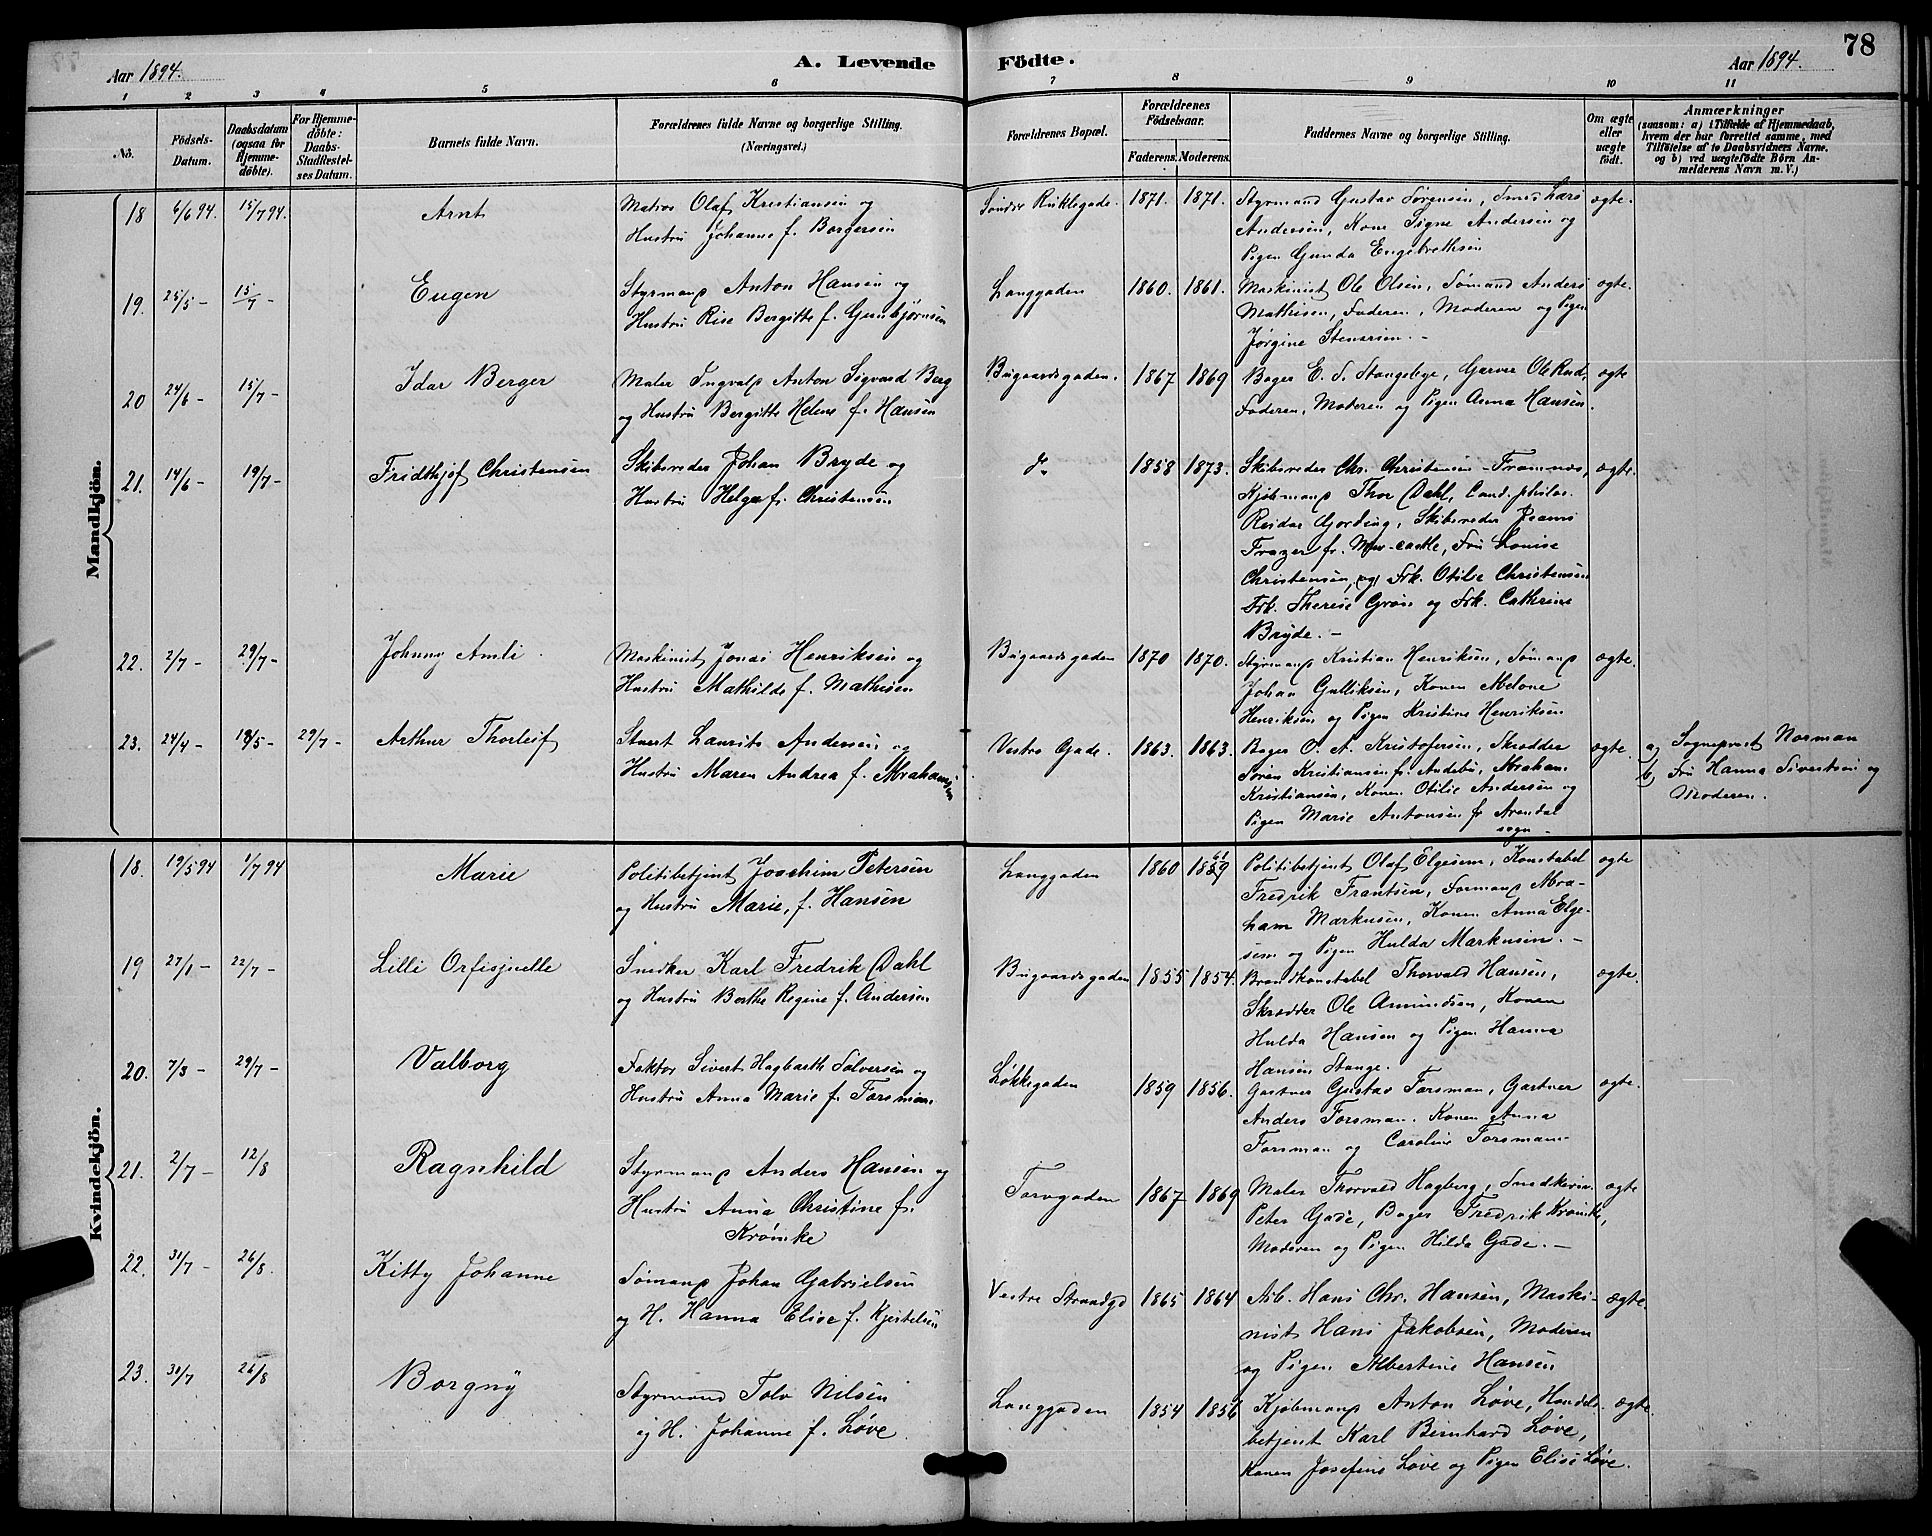 78
Aar 1894. A. Levende Födte. Aar 1894.
1 2 3 4 5 6 7 8 9 10 11
No. Födsels-Datum. Daabsdatum (ogsaa for Hjemme-döbte). For Hjemme-döbte: Daabs-Stadfæstel-ses Datum. Barnets fulde Navn. Forældrenes fulde Navne og borgerlige Stilling. (Næringsvei.) Forældrenes Bopæl. Forældrenes Födselsaar. Faderens. Moderens. Faddernes Navne og borgerlige Stilling. Om ægte eller uægte födt. Anmærkninger (saasom: a) i Tilfælde af Hjemmedaab, hvem der har forrettet samme, med Tilföielse af to Daabsvidners Navne, og b) ved uægtefödte Börn An-melderens Navn m. V.)
Mandkjön.
18 6/6 94. 15/7 94. Arnt Matros Olaf Kristiansen og Søndre 1871. 1871. Styrmand Gustav Sørensen, Smed Lars ægte.
Hustru Johanne f. Borgersen Andersen, Kone Signe Andersen og
Pigen Gunda Engebrethsen
19. 25/5 - 15/7 - Eugen Styrmand Anton Hansen og Langgaden 1860. 1861. Maskinist Ole Olsen, Sømand Anders ægte.
Hustru Rise Bergitte f. Gunbjørnsen Mathisen, Faderen, Moderen og Pigen
Jørgine Stensrøen. -
20 24/6 - 15/7 - Idar Berger Maler Ingvald Anton Sigvard Berg Bugaardsgaden. 1867 1869 Bager E. S. Stangebye, Garver Ole Rud, ægte
og Hustru Bergitte Helene f. Hansen Faderen, Moderen og Pigen Anna Hansen.
21. 14/6 - 19/7 - Fridthjof Christensen Skibsreder Johan Bryde og do 1858 1873. Skibsreder Chr. Christensen - Framnæs, ægte.
Hustru Helga f. Christensen Kjøbmand Thor Dahl, Cand. philos.
Reidar Gjørding, Skibsreder Jeams
Frazer fr. New-castle, Fru Louise
Christensen, og Frk. Otilie Christensen
Frk. Therese Grøn og Frk. Cathrine
Bryde. -
22. 2/7 - 29/7 - Johnny Amli. Maskinist Jonas Henriksen og Bugaardsgaden 1870 1870. Styrmand Kristian Henriksen, Sømand ægte.
Hustru Mathilde f. Mathisen Johan Gulliksen, Konen Melone
Henriksen og Pigen Kristine Henriksen
23. 24/4 - 18/5 - 29/7 - Arthur Thorleif Stuert Laurits Andersen og Vestre Gade. 1863. 1863. Bager O. A. Kristofersen, Skrædder ægte. a) Sogneprest Norman
Hustru Maren Andrea f. Abrahamsen Søren Kristiansen fr. Andebu, Abraham b) Fru Hanna Sivertsen og
Kristiansen, Konen Otilie Andersen og Moderen.
Pigen Marie Antonsen fr. Arendal
sogn -
Kvindekjön.
18. 19/5 94 1/7 94 Marie Politibetjent Joachim Petersen Langgaden 1860 1859 61 Politibetjent Olaf Elgesem, Konstabel ægte
og Hustru Marie, f. Hansen Fredrik Frantsen, Formand Abra-
ham Markusen, Konen Anna Elge-
sem og Pigen Hulda Markusen. -
19 27/1 - 22/7 - Lilli Orfisjuelle Snedker Karl Fredrik Dahl Bugaardsgaden 1855 1854. Brandkonstabel Thorvald Hansen, ægte.
og Hustru Berthe Regine f. Andersen Skrædder Ole Amundsen, Konen
Hulda Hansen og Pigen Hanna
Hansen Stange.
20. 7/3 - 29/7 - Valborg Faktor Sivert Hagbarth Solversen og Løkkegaden 1859 1856. Gartner Gustav Forsman, Gartner ægte.
Hustru Anna Marie f. Forsman. Anders Forsman. Konen Anna
Forsman og Caroline Forsman-
21. 2/7 - 12/8 Ragnhild Styrmand Anders Hansen og Torvgaden 1867 1869 Maler Thorvald Hagberg, Snedkersv. ægte
Hustru Anna Christine f. Peter Gade, Bager Fredrik Krømke,
Krømke Moderen og Pigen Hilda Gade. -
22. 31/7 - 26/8. Kitty Johanne Sømand Johan Gabrielsen Vestre Strandgd 1865 1864 Arb. Hans Chr. Hansen, Maski- ægte.
og H. Hanna Elise f. Kjertelsen nist Hans Jakobsen, Moderen
og Pigen Albertine Hansen
23. 30/7 26/8 Borgny Styrmand Tolv Nilsen Langgaden 1854 1856 Kjøbmand Anton Løve, Handels- ægte.
og H. Johanne f. Løve betjent Karl Bernhard Løve,
Konen Josefine Løve og Pigen Elise Løve.